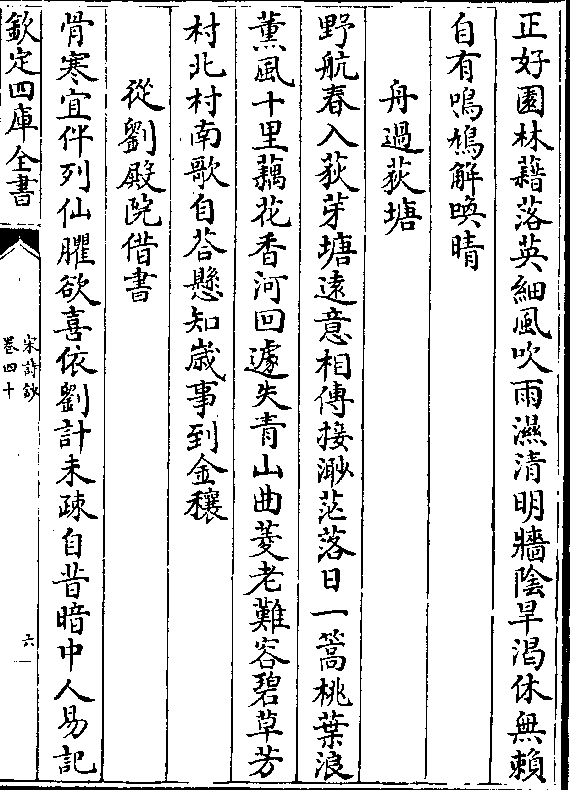 正好園林藉落英細風吹雨濕清明牆陰旱渇休無賴
自有鳴鳩解喚晴
舟過荻塘
野航春入荻芽塘遠意相傳接渺茫落日一篙桃葉浪
薰風十里藕花香河回遽失青山曲菱老難容碧草芳
村北村南歌自荅懸知嵗事到金穰
從劉殿院借書
骨寒宜伴列仙臞欲喜依劉計未疎自昔暗中人易記
欽定四庫全書
宋詩鈔
卷四十
六